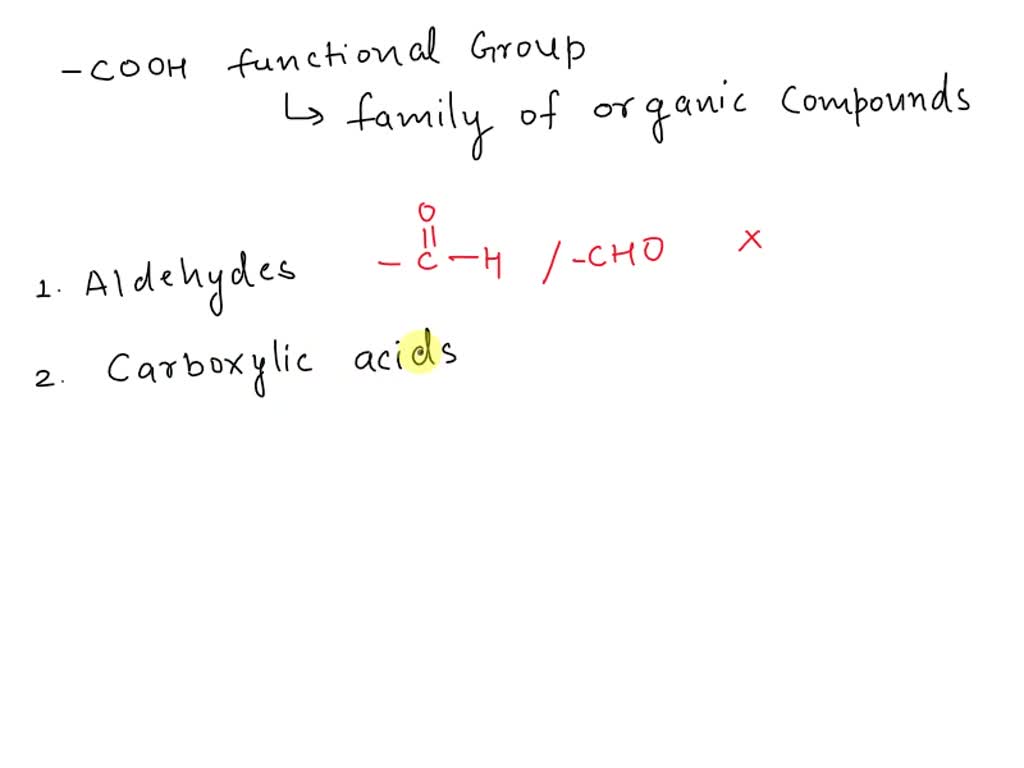 -COOH functional Group
↳ family of organic Compounds
O
||
1. Aldehydes - C - H / -CHO x
2. Carboxylic acids